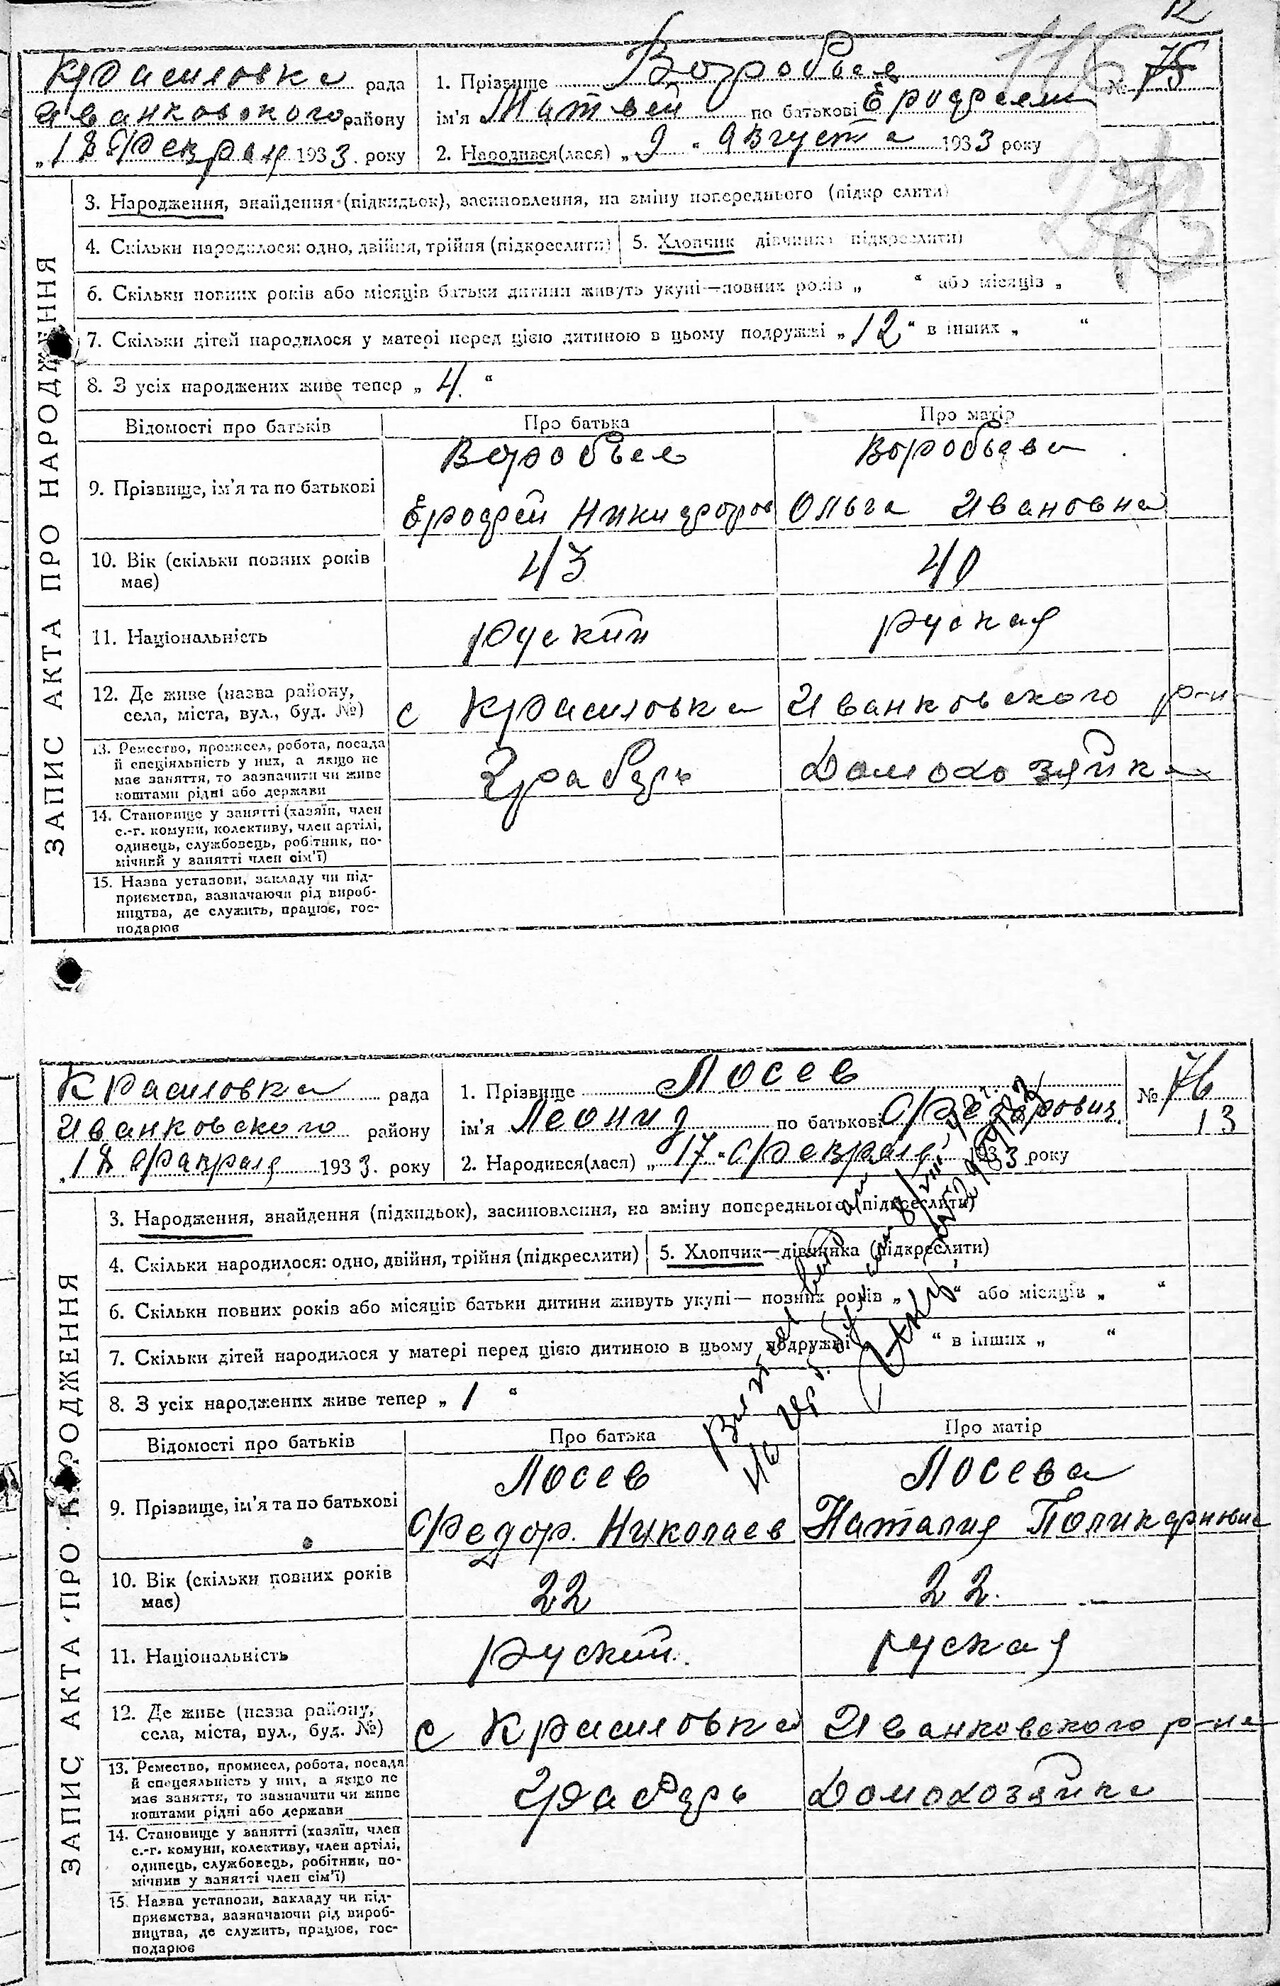 12
Красиловка рада
Иванковского району
„18 Феврал 1933. року
1. Прізвище Воробьев
ім'я Матвей по батькові Ерофееви
2. Народився(лася) „9“ Августа 1933 року
116 № 75
3. Народження, знайдення (підкидьок), засиновлення, на зміну попереднього (підкр слити)
4. Скільки народилося: одно, двійня, трійня (підкреслити)
5. Хлопчик дівчинка підкреслити)
6. Скільки повних років або місяців батьки дитини живуть укупі—повних років „ “ або місяців „
7. Скільки дітей народилося у матері перед цією дитиною в цьому подружжі „12“ в інших „ “
8. З усіх народжених живе тепер „4.“
ЗАПИС АКТА ПРО НАРОДЖЕННЯ
Відомості про батьків Про батька Про матір
9. Прізвище, ім'я та по батькові
Воробьев Воробьева
Ерофей Никифоров Ольга Ивановна
10. Вік (скільки повних років має) 43 40
11. Національність руский руская
12. Де живе (назва району,
села, міста, вул., буд. №) с Красиловка Иванковского р-н
13. Ремество, промисел, робота, посада
й спеціяльність у них, а якщо не
має заняття, то зазначити чи живе
коштами рідні або держави
Грабарь Домохозяйка
14. Становище у занятті (хазяїн, член
с.-г. комуни, колективу, член артілі,
одинець, службовець, робітник, по-
мічний у занятті член сім'ї)
15. Назва установи, закладу чи під-
приємства, зазначаючи рід вироб-
ництва, де служить, працює, гос-
подарює
Красиловка рада
Иванковского району
„18 Февраля 1933. року
1. Прізвище Лосев
ім'я Леонид по батькові Федорович
2. Народився(лася) „17“ Февраля 1933 року
№ 76
13
3. Народження, знайдення (підкидьок), засиновлення, на зміну попереднього (підкреслити)
4. Скільки народилося: одно, двійня, трійня (підкреслити)
5. Хлопчик—дівчинка (підкреслити)
6. Скільки повних років або місяців батьки дитини живуть укупі— повних років „ “ або місяців „ “
7. Скільки дітей народилося у матері перед цією дитиною в цьому подружжі „ “ в інших „ “
8. З усіх народжених живе тепер „1“
ЗАПИС АКТА ПРО НАРОДЖЕННЯ
Відомості про батьків Про батька Про матір
9. Прізвище, ім'я та по батькові
Лосев Лосева
Федор. Николаев Наталия Поликарповна
10. Вік (скільки повних років має) 22 22.
11. Національність руский. руская
12. Де живе (назва району,
села, міста, вул., буд. №) с Красиловка Иванковского р-на
13. Ремество, промисел, робота, посада
й спецсяльність у них, а якщо не
має заняття, то зазначити чи живе
коштами рідні або держави
Грабарь Домохозяйка
14. Становище у занятті (хазяїн, член
с.-г. комуни, колективу, член артілі,
одинець, службовець, робітник, по-
мічнив у занятті член сім'ї)
15. Назва установи, закладу чи під-
приємства, зазначаючи рід вироб-
ництва, де служить, працює, гос-
подарює